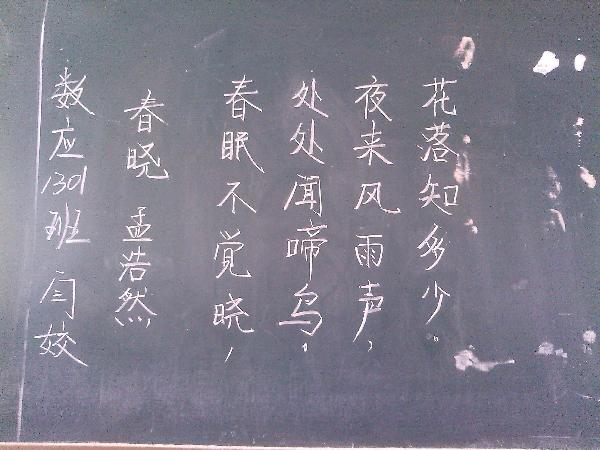 数应1301班 闫姣
春晓 孟浩然
春眠不觉晓，
处处闻啼鸟。
夜来风雨声，
花落知多少。